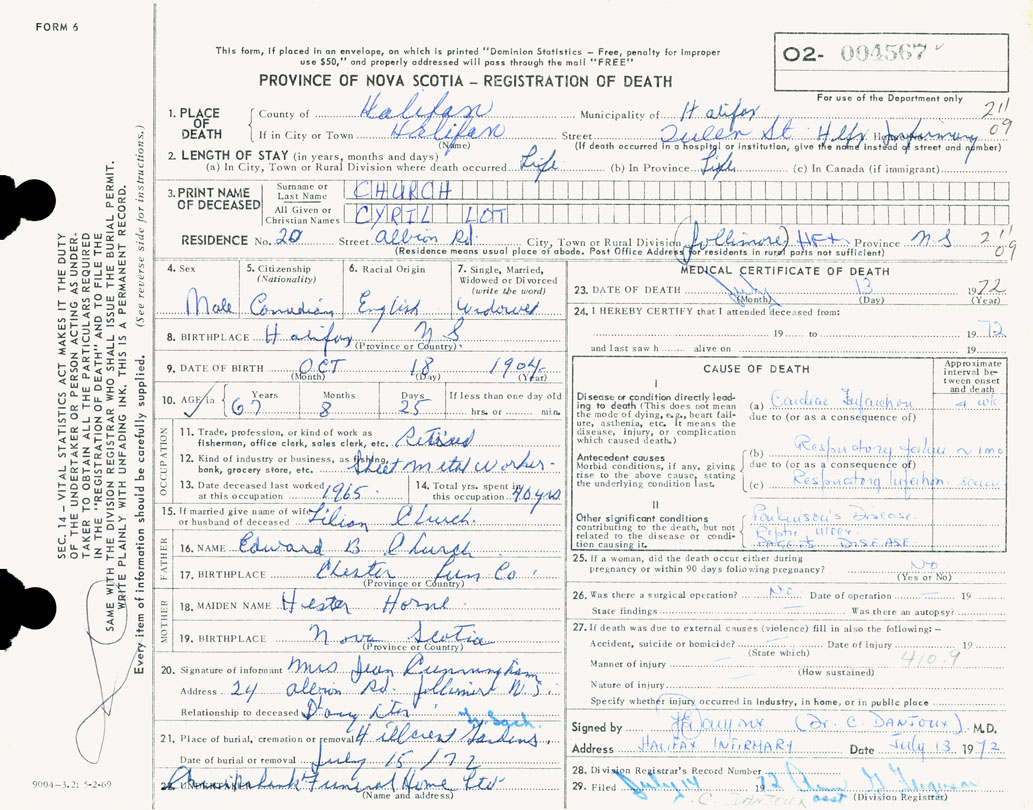 FORM 6
This form, if placed in an envelope, on which is printed "Dominion Statistics – Free, penalty for improper
use $50," and properly addressed will pass through the mail "FREE"
O2- 004567
PROVINCE OF NOVA SCOTIA – REGISTRATION OF DEATH
For use of the Department only
1. PLACE OF DEATH
County of Halifax Municipality of Halifax 211
If in City or Town Halifax Street Queen St Hlfx Infirmary 09
(Name) (If death occurred in a hospital or institution, give the name instead of street and number)
2. LENGTH OF STAY (in years, months and days)
(a) In City, Town or Rural Division where death occurred Life (b) In Province Life (c) In Canada (if immigrant)
3. PRINT NAME OF DECEASED
Surname or Last Name CHURCH
All Given or Christian Names CYRIL LOT
RESIDENCE No. 20 Street Albion Rd. City, Town or Rural Division (Jollimore) HFX Province N S 211
(Residence means usual place of abode. Post Office Address for residents in rural parts not sufficient) 09
4. Sex Male
5. Citizenship (Nationality) Canadian
6. Racial Origin English
7. Single, Married, Widowed or Divorced (write the word) Widowed
8. BIRTHPLACE Halifax N S
(Province or Country)
9. DATE OF BIRTH OCT 18 1904
(Month) (Day) (Year)
10. AGE in Years 67 Months 8 Days 25 If less than one day old hrs. or min.
OCCUPATION
11. Trade, profession, or kind of work as
fisherman, office clerk, sales clerk, etc. Retired
12. Kind of industry or business, as fishing,
bank, grocery store, etc. Sheet metal worker
13. Date deceased last worked
at this occupation 1965
14. Total yrs. spent in
this occupation 40 yrs
15. If married give name of wife
or husband of deceased Lilian Church
FATHER
16. NAME Edward B Church
17. BIRTHPLACE Chester Lun Co
(Province or Country)
MOTHER
18. MAIDEN NAME Hester Horne
19. BIRTHPLACE Nova Scotia
(Province or Country)
20. Signature of informant Mrs Jean Cunningham
Address 24 Albion Rd. Jollimore N.S.
Relationship to deceased Daughter
21. Place of burial, cremation or removal Hillcrest Gardens
Date of burial or removal July 15/72
Cruikshank Funeral Home Ltd
(Name and address)
MEDICAL CERTIFICATE OF DEATH
23. DATE OF DEATH July 13 1972
(Month) (Day) (Year)
24. I HEREBY CERTIFY that I attended deceased from:
19 to 1972
and last saw h alive on 19
CAUSE OF DEATH
Approximate interval between onset and death
I
Disease or condition directly leading to death (This does not mean the mode of dying, e.g., heart failure, asthenia, etc. It means the disease, injury, or complication which caused death.)
(a) Cardiac Infarction wk
due to (or as a consequence of)
Antecedent causes
Morbid conditions, if any, giving rise to the above cause, stating the underlying condition last.
(b) Respiratory failure
due to (or as a consequence of)
(c) Respiratory Infection
II
Other significant conditions
contributing to the death, but not related to the disease or condition causing it.
Parkinson's Disease
Peptic ulcer
PAGET'S DISEASE
25. If a woman, did the death occur either during
pregnancy or within 90 days following pregnancy? NO
(Yes or No)
26. Was there a surgical operation? No Date of operation 19
State findings Was there an autopsy?
27. If death was due to external causes (violence) fill in also the following: –
Accident, suicide or homicide? Date of injury 19
(State which) 410.9
Manner of injury
(How sustained)
Nature of injury
Specify whether injury occurred in industry, in home, or in public place
Signed by (Dr. C DANJOUX) M.D.
Address HALIFAX INFIRMARY Date July 13 1972
28. Division Registrar's Record Number
29. Filed July 14 1972
C. DANJOUX asst (Division Registrar)
SEC. 14 – VITAL STATISTICS ACT MAKES IT THE DUTY
OF THE UNDERTAKER OR PERSON ACTING AS UNDERTAKER TO OBTAIN ALL THE PARTICULARS REQUIRED
IN THE "REGISTRATION OF DEATH" AND TO FILE THE
SAME WITH THE DIVISION REGISTRAR WHO SHALL ISSUE THE BURIAL PERMIT.
WRITE PLAINLY WITH UNFADING INK. THIS IS A PERMANENT RECORD.
Every item of information should be carefully supplied. (See reverse side for instructions.)
9004-3.2: 5-2-69